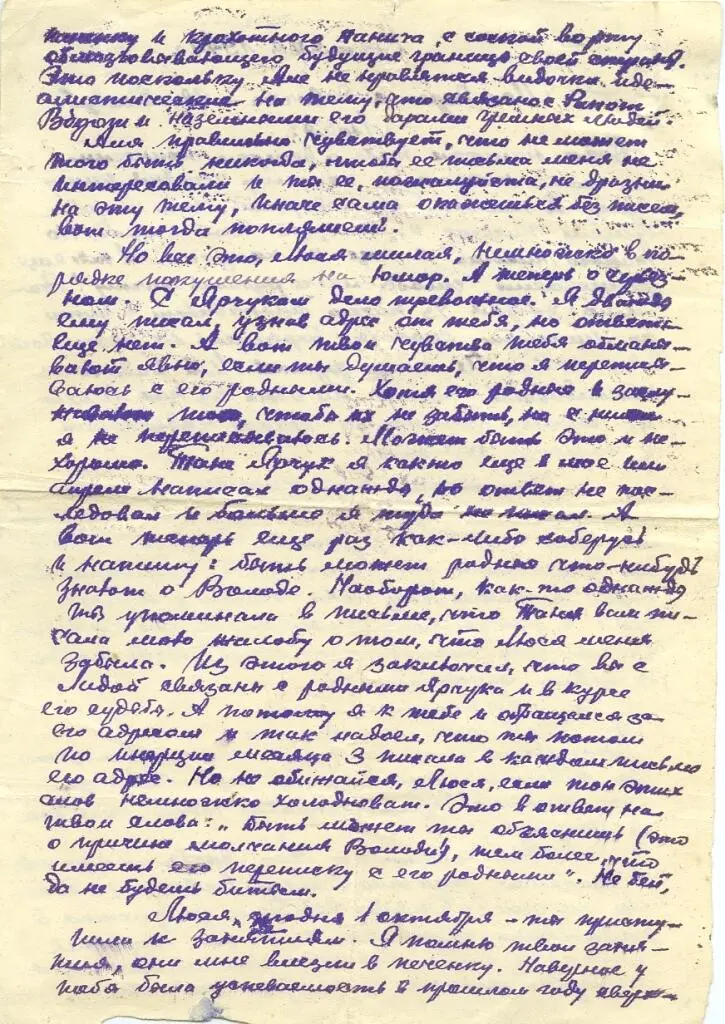 и крохотного танита, с соской во рту
обмозговывающего будущие границы своей страны.
Это поскольку Але не нравятся видочки иде-
алистические на тему, что связано с Рикой
Вздохи и наземными его дарами грешных людей.
Аля правильно чувствует, что не может
того быть никогда, чтобы ее письма меня не
интересовали и ты ее, пожалуйста, не дразни
на эту тему, иначе сама окажешься без писем,
вот тогда попляшешь.
Но все это, Люся милая, немножко в по-
рядке покушения на юмор. А теперь о серьез-
ном. С Ярчуком дело тревожное. Я дважды
ему писал, узнав адрес от тебя, но ответа
еще нет. А вот твои чувства тебя обманы-
вают явно, если ты думаешь, что я перепи-
сываюсь с его родными. Хотя его родные и заслу-
живают того, чтобы их не забыть, но с ними
я не переписываюсь. Может быть это и не-
хорошо. Тане Ярчук я как-то еще в мае или
апреле написал однажды, но ответ не пос-
ледовал и больше я туда не писал. А
вот теперь еще раз как-либо соберусь
и напишу: быть может родные что-нибудь
знают о Володе. Наоборот, как-то однажды
ты упоминала в письме, что Таня вам пи-
сала мою жалобу о том, что Люся меня
забыла. Из этого я заключил, что вы с
Лидой связаны с родными Ярчука и в курсе
его судьбы. А потому я к тебе и обращался за
его адресом и так надоел, что ты потом
по инерции месяца 3 писала в каждом письме
его адрес. Но не обижайся, Люся, если тон этих
слов немножко холодноват. Это в ответ на
твои слова: "Быть может ты объяснишь (это
о причине молчания Володи), тем более, что
имеешь его переписку с его родными". Не бей,
да не будешь битым.
Люся, сегодня 1 октября - ты присту-
пила к занятиям. Я помню твои заня-
тия, они мне влезли в печенку. Наверное у
тебя была успеваемость в прошлом году сверх-